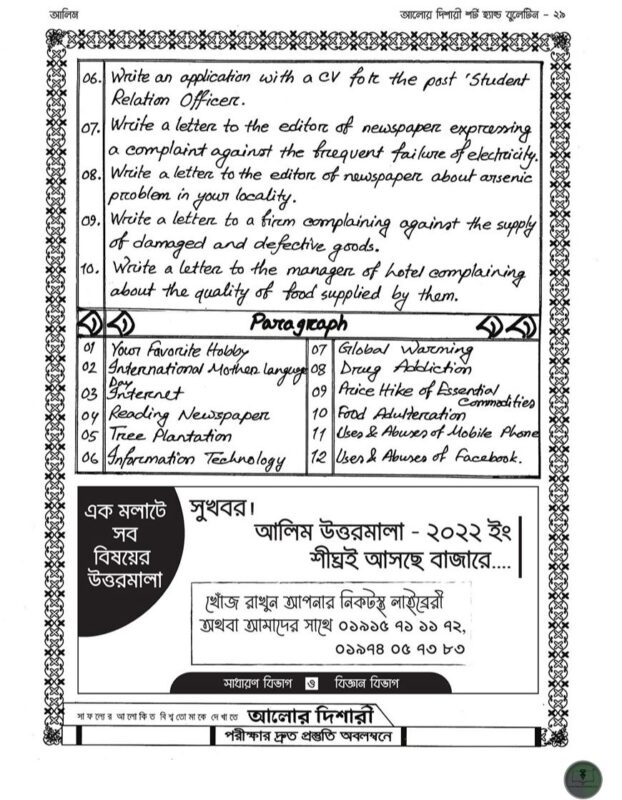 আলিম
আলোর দিশারী শর্ট হ্যান্ড বুলেটিন - ২৯
06. Write an application with a CV for the post 'Student
Relation Officer.
07. Write a letter to the editor of newspaper expressing
a complaint against the frequent failure of electricity.
08. Write a letter to the editor of newspaper about arsenic
problem in your locality.
09. Write a letter to a firm complaining against the supply
of damaged and defective goods.
10. Write a letter to the manager of hotel complaining
about the quality of food supplied by them.
Paragraph
01 Your Favorite Hobby
02 International Mother Language
Day
03 Internet
04 Reading Newspaper
05 Tree Plantation
06 Information Technology
07 Global Warming
08 Drug Addiction
09 Price Hike of Essential
Commodities
10 Food Adulteration
11 Uses & Abuses of Mobile Phone
12 Uses & Abuses of Facebook.
এক মলাটে
সব
বিষয়ের
উত্তরমালা
সুখবর।
আলিম উত্তরমালা - ২০২২ ইং
শীঘ্রই আসছে বাজারে....
খোঁজ রাখুন আপনার নিকটস্থ লাইব্রেরী
অথবা আমাদের সাথে ০১৯১৫ ৭১ ১১ ৭২,
০১৯৭৪ ০৫ ৭৩ ৮৩
সাধারণ বিভাগ ও বিজ্ঞান বিভাগ
সাফল্যের আলোকিত বিশ্ব তোমাকে দেখাতে আলোর দিশারী
পরীক্ষার দ্রুত প্রস্তুতি অবলম্বনে